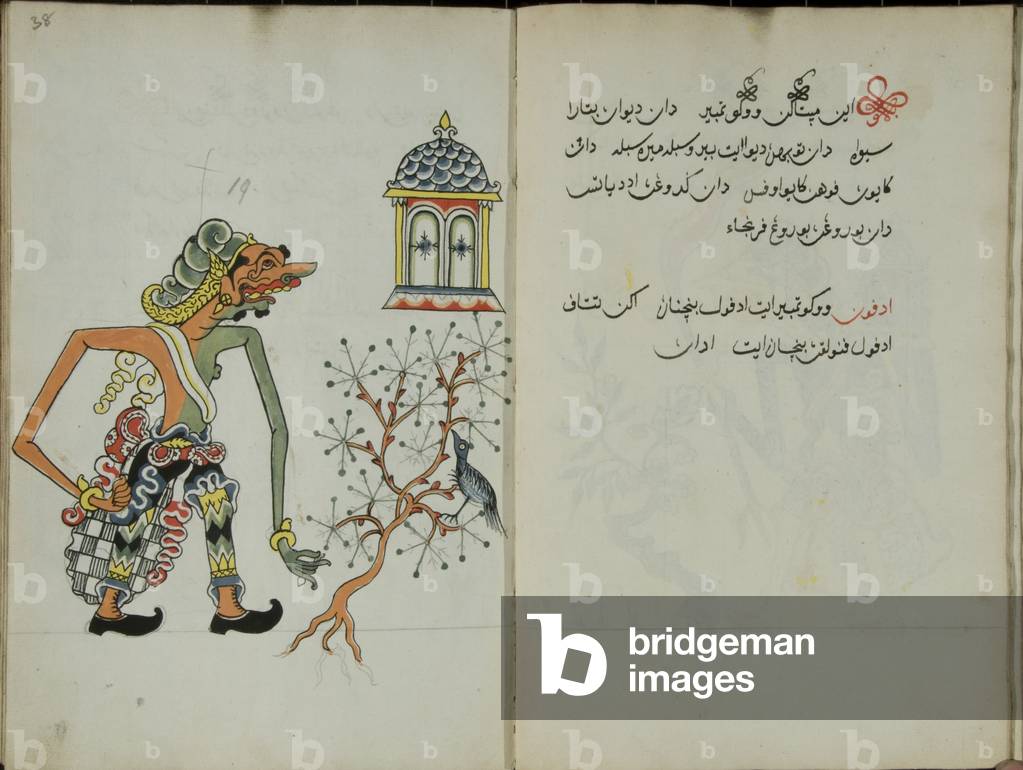 38
19.
اين مپتاکن ووکو تمبير دان ديوان بتارا
سيواه دان توبهن ديوا ايت بيرو سبله ميره سبله دان
کايون فوهن کايو اوفس دان کدوڠن اد
دان بوروڠن بوروڠ فرنجاء
ادفون ووکو تمبير ايت ادفول بنچنان اکن تتاف
ادفول فنولقن بنچنان ايت ادان
bridgeman
images